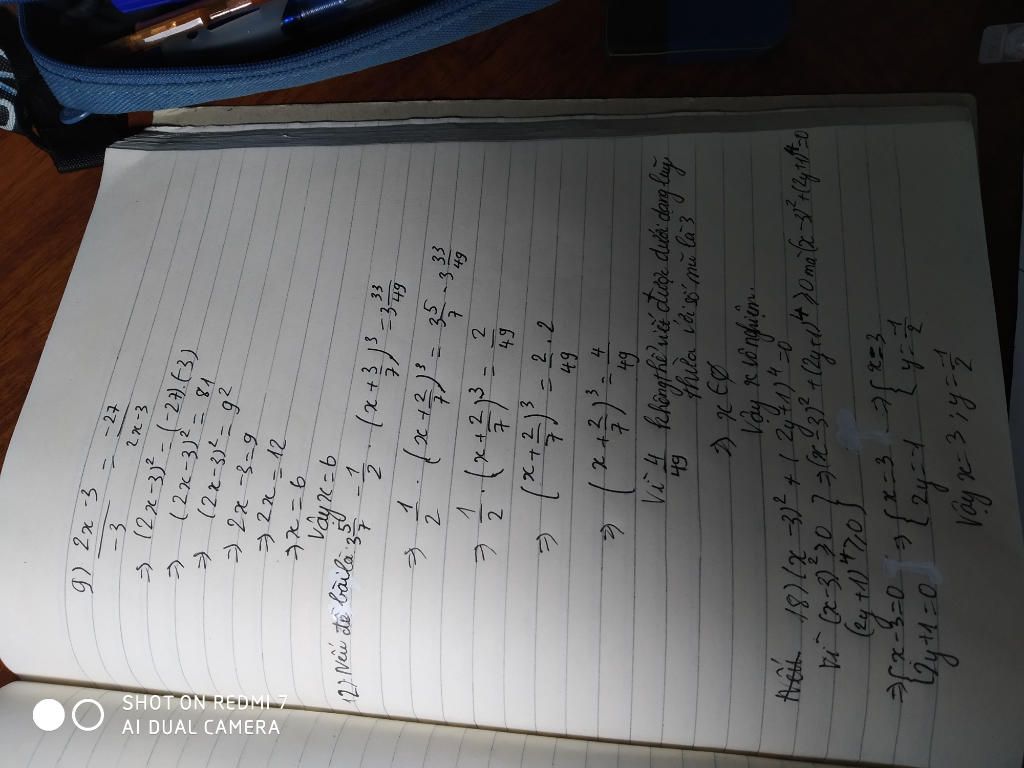 9) \frac{2x-3}{-3} = \frac{-27}{2x-3}
⇒ (2x-3)² = (-27).(-3)
⇒ (2x-3)² = 81
⇒ (2x-3)² = 9²
⇒ 2x-3=9
⇒ 2x = 12
⇒ x = 6
Vậy x = 6
12) Nếu đề bài là: 3\frac{5}{7} - \frac{1}{2} . (x + \frac{3}{7})³ = 3\frac{33}{49}
⇒ \frac{1}{2} . (x + \frac{2}{7})³ = 3\frac{5}{7} - 3\frac{33}{49}
⇒ \frac{1}{2} . (x + \frac{2}{7})³ = \frac{2}{49}
⇒ (x + \frac{2}{7})³ = \frac{2}{49} . 2
⇒ (x + \frac{2}{7})³ = \frac{4}{49}
Vì \frac{4}{49} không thể viết được dưới dạng lũy
thừa với số mũ là 3
⇒ x ∈ ∅
Vậy x vô nghiệm.
18) (x-3)² + (2y+1)⁴ = 0
Vì (x-3)² ≥ 0
(2y+1)⁴ ≥ 0 } ⇒ (x-3)² + (2y+1)⁴ ≥ 0 mà (x-3)² + (2y+1)⁴ = 0
⇒ { x-3=0 ⇒ { x=3 ⇒ { x=3
{ 2y+1=0 { 2y=-1 { y=\frac{-1}{2}
Vậy x = 3 ; y = \frac{-1}{2}
SHOT ON REDMI 7
AI DUAL CAMERA